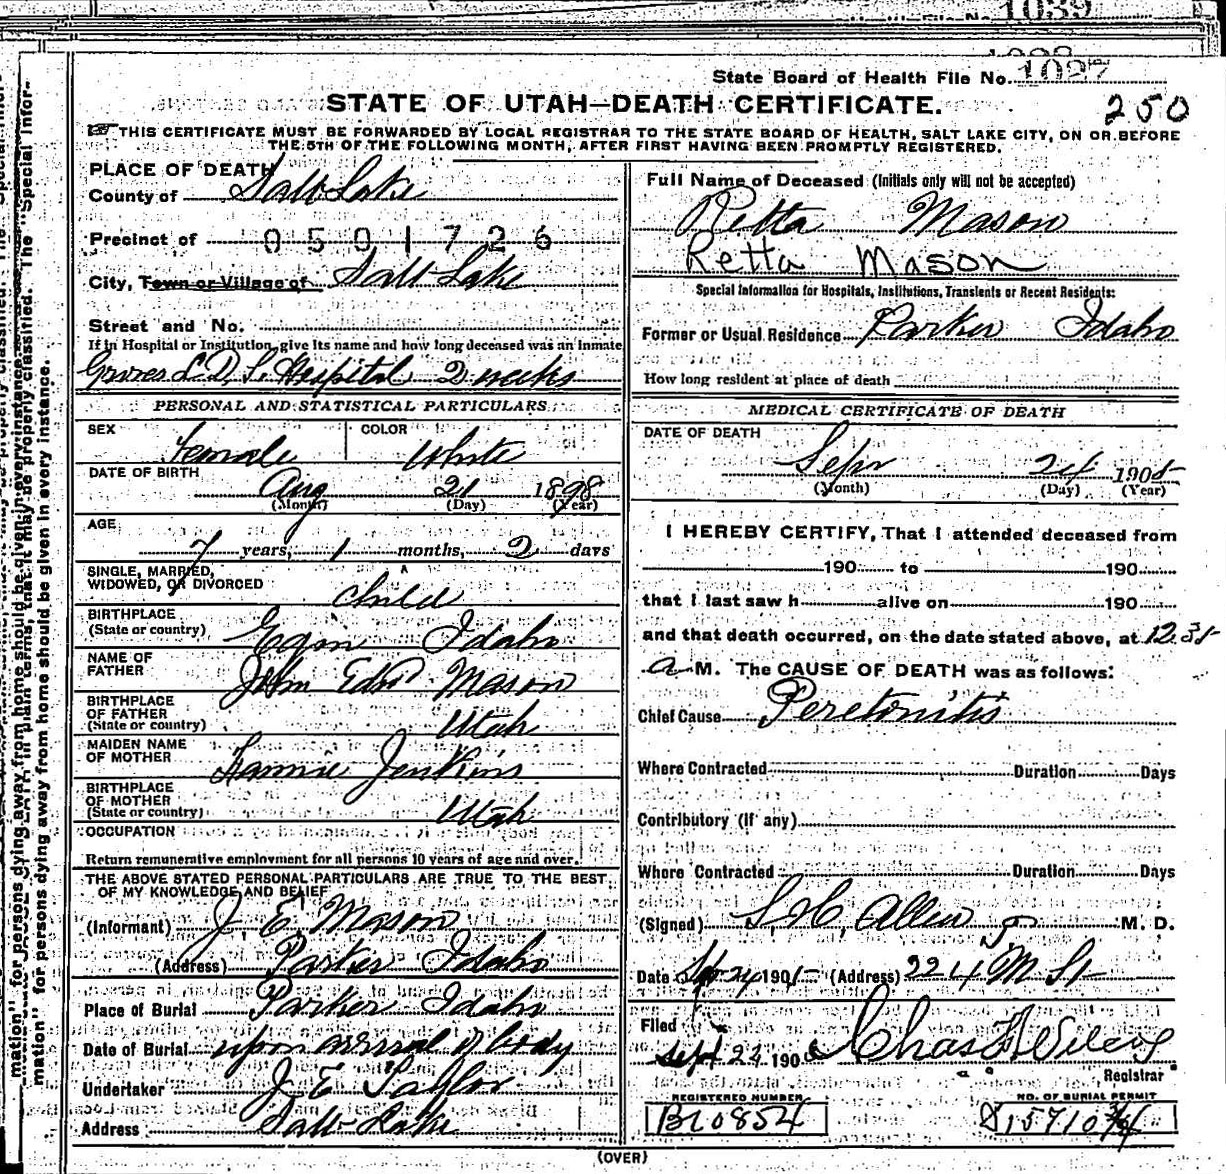 1039
State Board of Health File No. 1027
STATE OF UTAH—DEATH CERTIFICATE.
250
THIS CERTIFICATE MUST BE FORWARDED BY LOCAL REGISTRAR TO THE STATE BOARD OF HEALTH, SALT LAKE CITY, ON OR BEFORE
THE 5TH OF THE FOLLOWING MONTH, AFTER FIRST HAVING BEEN PROMPTLY REGISTERED.
PLACE OF DEATH
County of Salt Lake
Precinct of 0501726
City, Town or Village of Salt Lake
Street and No.
If in Hospital or Institution, give its name and how long deceased was an inmate
Groves L.D.S. Hospital 2 weeks
PERSONAL AND STATISTICAL PARTICULARS
SEX Female COLOR White
DATE OF BIRTH Aug 21 1898
(Month) (Day) (Year)
AGE
7 years, 1 months, 2 days
SINGLE, MARRIED,
WIDOWED, OR DIVORCED child
BIRTHPLACE
(State or country) Egin Idaho
NAME OF
FATHER John Edw Mason
BIRTHPLACE
OF FATHER
(State or country) Utah
MAIDEN NAME
OF MOTHER Fannie Jenkins
BIRTHPLACE
OF MOTHER
(State or country) Utah
OCCUPATION
Return remunerative employment for all persons 10 years of age and over.
THE ABOVE STATED PERSONAL PARTICULARS ARE TRUE TO THE BEST
OF MY KNOWLEDGE AND BELIEF
(Informant) J. E. Mason
(Address) Parker Idaho
Place of Burial Parker Idaho
Date of Burial upon arrival of body
Undertaker J E Taylor
Address Salt Lake
Full Name of Deceased (Initials only will not be accepted)
Retta Mason
Retta Mason
Special Information for Hospitals, Institutions, Transients or Recent Residents:
Former or Usual Residence Parker Idaho
How long resident at place of death
MEDICAL CERTIFICATE OF DEATH
DATE OF DEATH
Sepr 24 1905
(Month) (Day) (Year)
I HEREBY CERTIFY, That I attended deceased from
190 to 190
that I last saw h alive on 190
and that death occurred, on the date stated above, at 12.35
a M. The CAUSE OF DEATH was as follows:
Chief Cause Peretonitis
Where Contracted Duration Days
Contributory (if any)
Where Contracted Duration Days
(Signed) S. H. Allen M. D.
Date Sep 24 1905 (Address) 224 M St
Filed
Sept 24 190 Chas Wilcox
Registrar
REGISTERED NUMBER
B10854
NO. OF BURIAL PERMIT
(OVER)
mation" for persons dying away from home should be given in every instance.